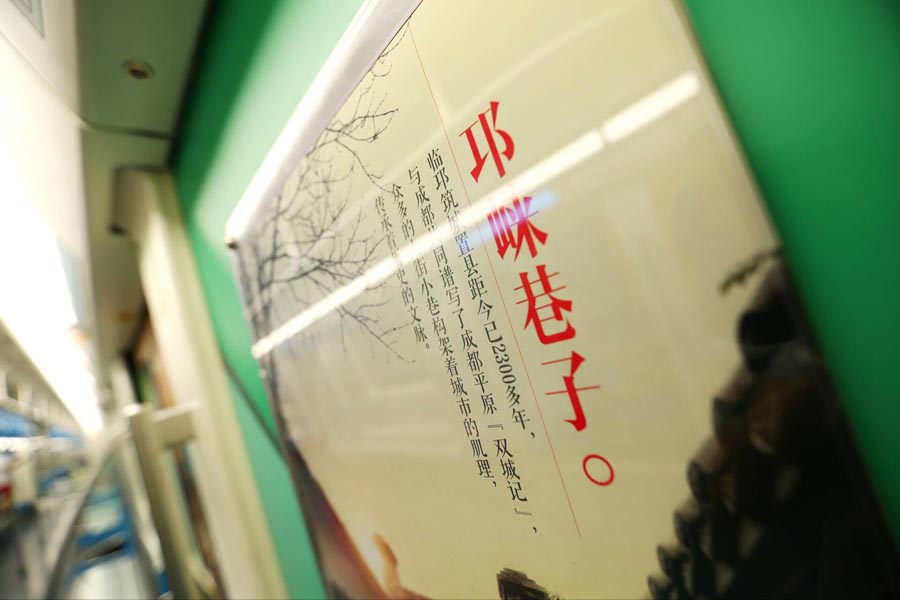 邛崃巷子。
临邛筑城置县距今已2300多年，
与成都共同谱写了成都平原『双城记』，
众多的街小巷构架着城市的肌理，
传承着历史的文脉。